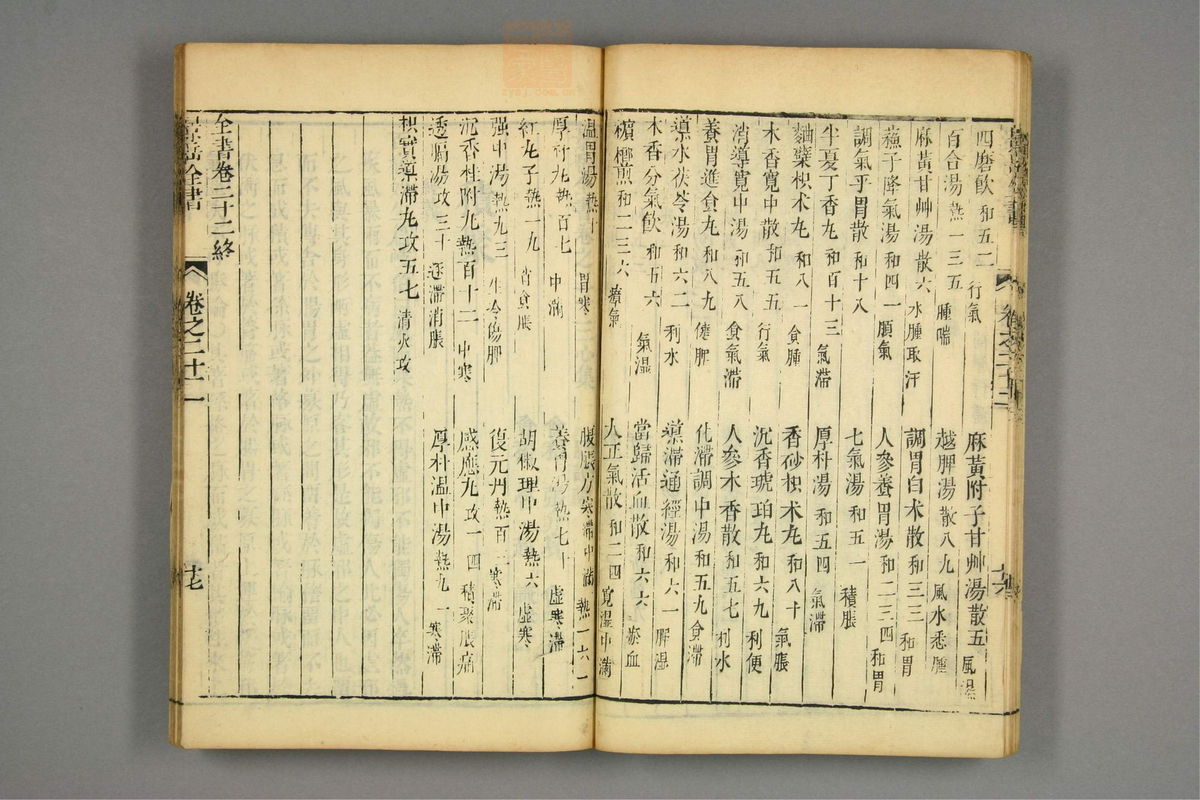 四磨飲 和五二 行氣 麻黃附子甘艸湯 散五 風濕
百合湯 熱一三五 腫喘 越脾湯 散八九 風水悉腫
麻黃甘艸湯 散六 水腫取汗 調胃白术散 和三三 和胃
蘓子降氣湯 和四一 順氣 人參養胃湯 和二三四 和胃
調氣平胃散 和十八 七氣湯 和五一 積脹
半夏丁香丸 和百十三 氣滯 厚朴湯 和五四 氣滯
麯糵枳术丸 和八一 食腫 香砂枳术丸 和八十 氣脹
木香寬中散 和五五 行氣 沉香琥珀丸 和六九 利便
消導寬中湯 和五八 食氣滯 人參木香散 和五七 利水
養胃進食丸 和八九 健脾 化滯調中湯 和五九 食滯
導水茯苓湯 和六二 利水 導滯通經湯 和六一 脾濕
木香分氣飲 和五六 氣濕 當歸活血散 和六六 瘀血
檳榔煎 和二三六 瘴氣 人正氣散 和二四 寬濕中滿
溫胃湯 熱十 胃寒 腹脹方 寒滯中滿 熱一六一
厚朴丸 熱百七 中滿 養胃湯 熱七十 虛寒滯
紅丸子 熱一九 消食脹 胡椒理中湯 熱六 虛寒
強中湯 熱九三 生冷傷脾 復元丹 熱百三 寒滯
沉香桂附丸 熱百十二 中寒 感應丸 攻一四 積聚脹痛
透膈湯 攻三十 逐滯消脹 厚朴溫中湯 熱九一 寒滯
枳實導滯丸 攻五七 清火攻
全書卷二十二終
景岳全書 卷之二十二